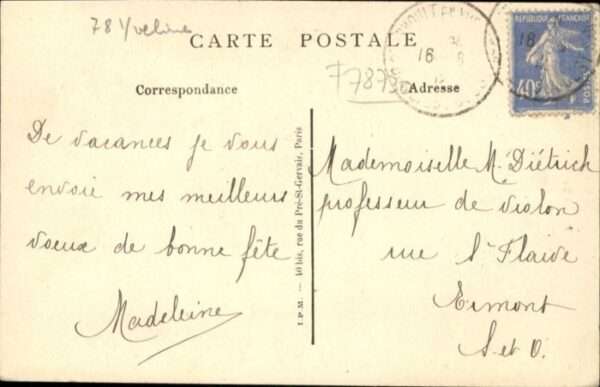 78 Yvelines
CARTE POSTALE
F7879
Correspondance
Adresse
REPUBLIQUE FRANÇAISE
40c
POSTES
16
De vacances je vous
envoie mes meilleurs
voeux de bonne fête
Madeleine
I.P.M. — 40 bis, rue du Pré-St-Gervais, Paris
Mademoiselle M. Diétrich
professeur de violon
rue St Flaive
Ermont
S. et O.